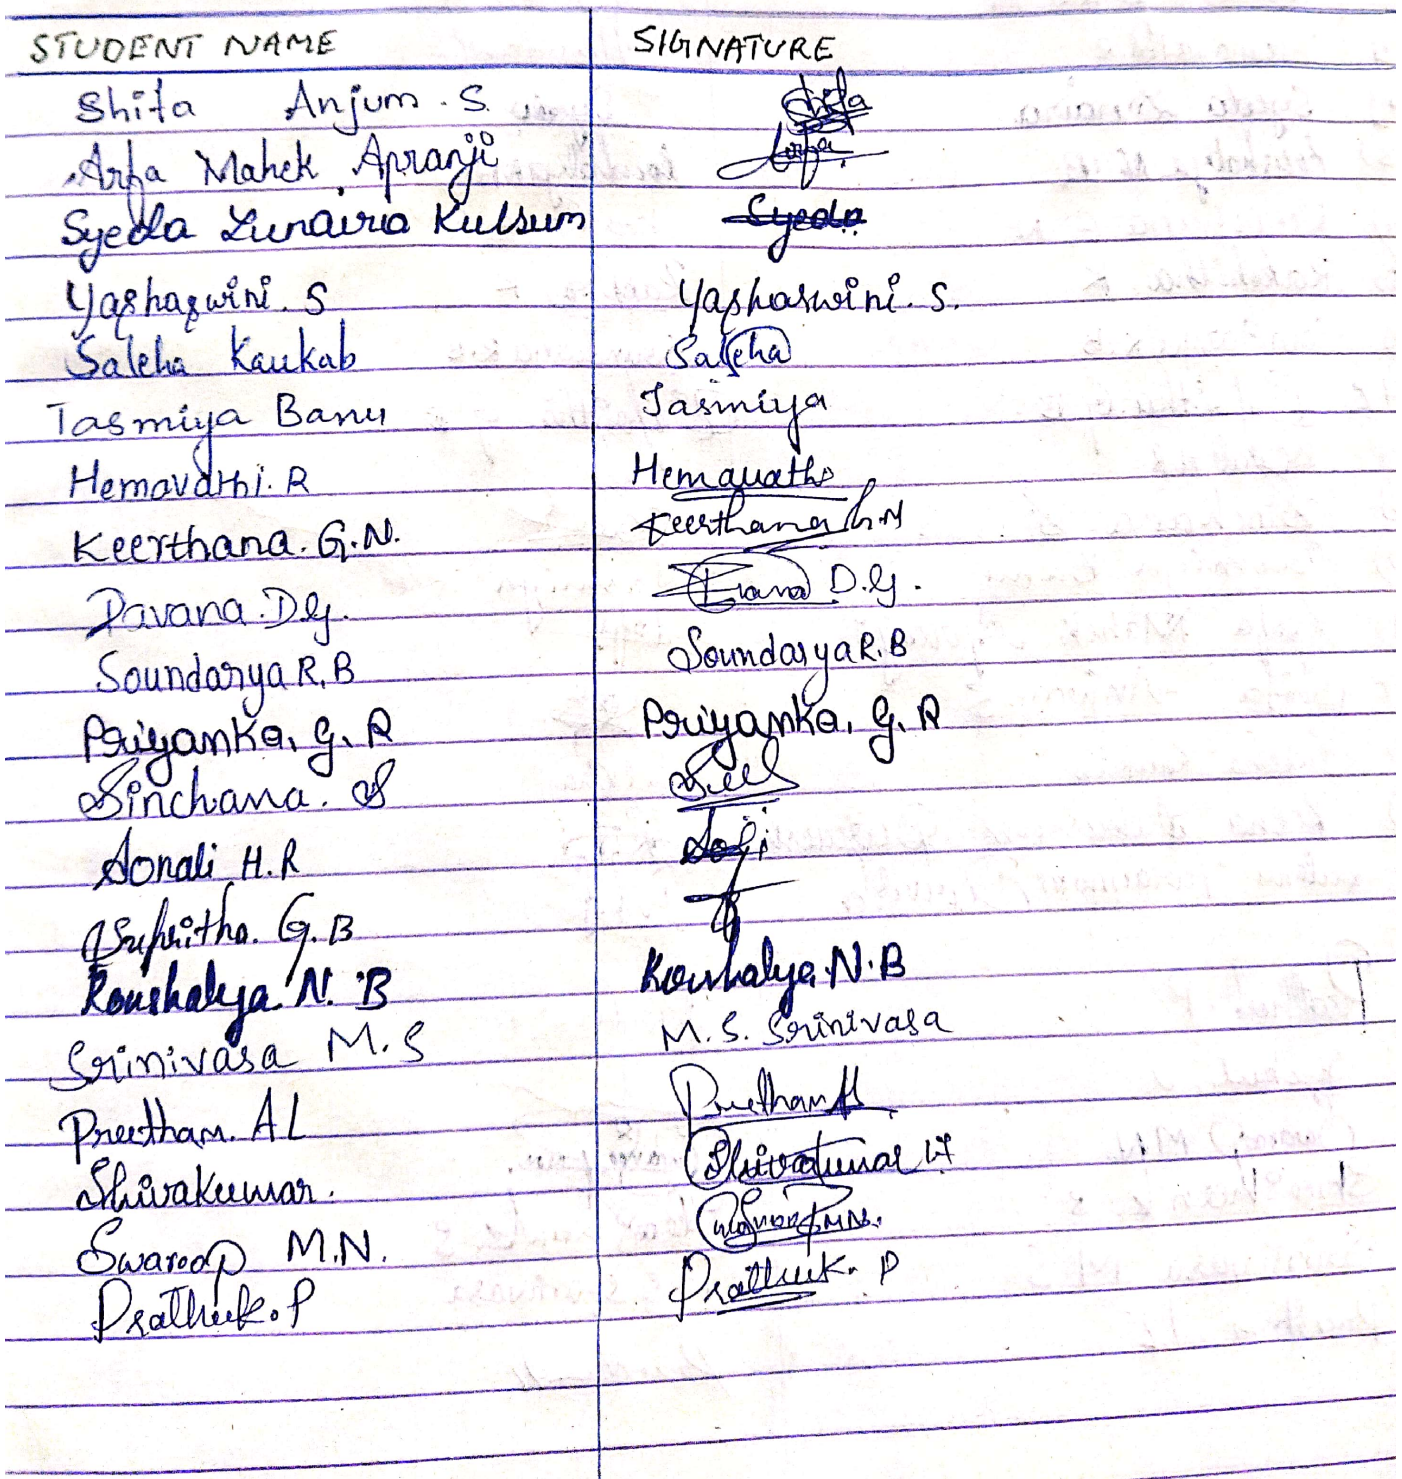 STUDENT NAME SIGNATURE
Shifa Anjum. S. Shifa
Arfa Mahek Apranji Arfa.
Syeda Zunairia Kulsum Syeda
Yashaswini. S Yashaswini. S.
Saleha Kaukab Saleha
Tasmiya Banu Tasmiya
Hemavathi. R Hemavathi
Keerthana. G.N. Keerthana G.N
Pavana. D.G. D.G.
Soundarya R.B Soundarya R.B
Priyanka. G. R Priyanka. G. R
Sinchana. S
Sonali H.R
Supritha. G.B
Koushalya. N. B Koushalya N.B
Srinivasa M.S M.S. Srinivasa
Preetham. A L Preetham
Shivakumar. Shivakumar
Swaroop M.N. M.N.
Prathik. P Prathik. P